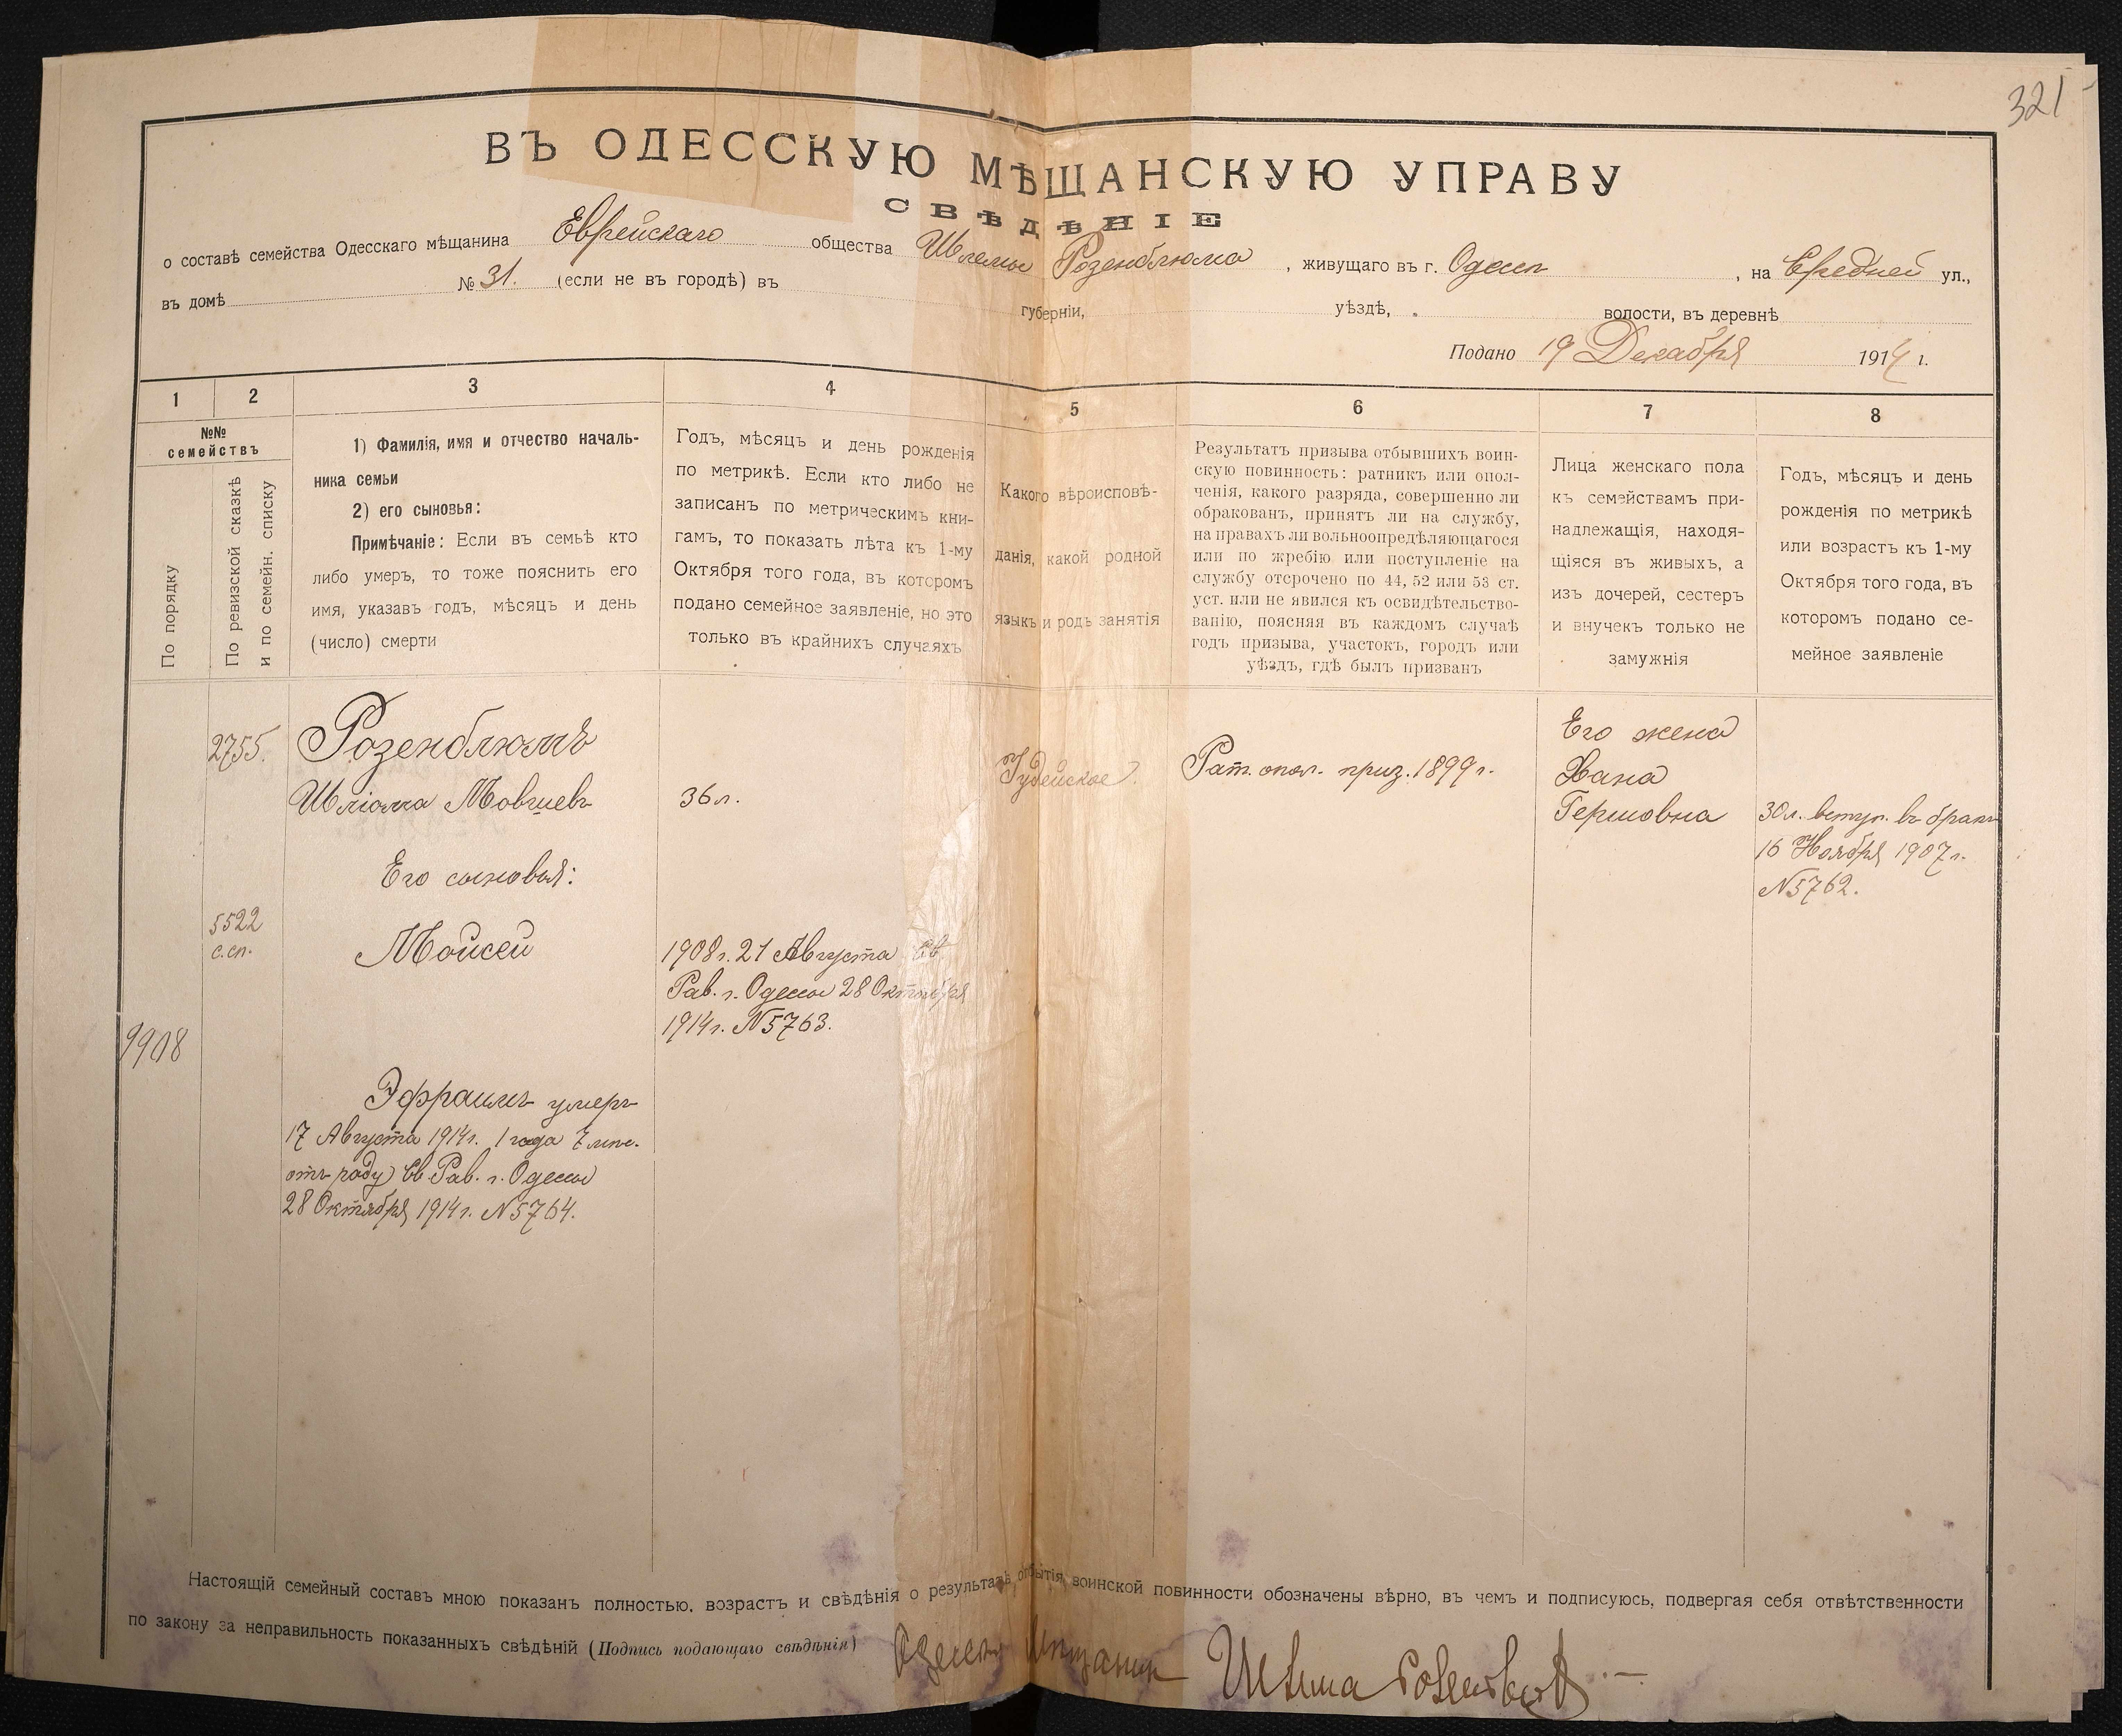 321
ВЪ ОДЕССКУЮ МѢЩАНСКУЮ УПРАВУ
СВѢДѢНІЕ
о составѣ семейства Одесскаго мѣщанина Еврейскаго общества Шлемы Розенблюма, живущаго въ г. Одессѣ, на Средней ул.,
въ домѣ № 31. (если не въ городѣ) въ губерніи, уѣздѣ, волости, въ деревнѣ
Подано 19 Декабря 1914 г.
1 2 3 4 5 6 7 8
№№
семействъ
По порядку
По ревизской сказкѣ
и по семейн. списку
1) Фамилія, имя и отчество началь-
ника семьи
2) его сыновья:
Примѣчаніе: Если въ семьѣ кто
либо умеръ, то тоже пояснить его
имя, указавъ годъ, мѣсяцъ и день
(число) смерти
Годъ, мѣсяцъ и день рожденія
по метрикѣ. Если кто либо не
записанъ по метрическимъ кни-
гамъ, то показать лѣта къ 1-му
Октября того года, въ которомъ
подано семейное заявленіе, но это
только въ крайнихъ случаяхъ
Какого вѣроисповѣ-
данія, какой родной
языкъ и родъ занятія
Результатъ призыва отбывшихъ воин-
скую повинность: ратникъ или опол-
ченія, какого разряда, совершенно ли
обракованъ, принятъ ли на службу,
на правахъ ли вольноопредѣляющагося
или по жребію или поступленіе на
службу отсрочено по 44, 52 или 53 ст.
уст. или не явился къ освидѣтельство-
ванію, поясняя въ каждомъ случаѣ
годъ призыва, участокъ, городъ или
уѣздъ, гдѣ былъ призванъ
Лица женскаго пола
къ семействамъ при-
надлежащія, находя-
щіяся въ живыхъ, а
изъ дочерей, сестеръ
и внучекъ только не
замужнія
Годъ, мѣсяцъ и день
рожденія по метрикѣ
или возрастъ къ 1-му
Октября того года, въ
которомъ подано се-
мейное заявленіе
2755.
Розенблюмъ
Шліома Мовшевъ
36 л.
Іудейское.
Рат. опол. приз. 1899 г.
Его жена
Хана
Гершовна
30 л. вступ. въ бракъ
16 Ноября 1907 г.
N 5762.
Его сыновья:
5522
с. сп.
Мойсей
1908 г. 21 Августа Св
Рав. г. Одессы 28 Октября
1914 г. N 5763.
9908
Эфраимъ умеръ
17 Августа 1914 г. 1 года 7 мѣс.
отъ роду) Св Рав. г. Одессы
28 Октября 1914 г. N 5764.
Настоящій семейный составъ мною показанъ полностью, возрастъ и свѣдѣнія о результатѣ отбытія воинской повинности обозначены вѣрно, въ чемъ и подписуюсь, подвергая себя отвѣтственности
по закону за неправильность показанныхъ свѣдѣній (Подпись подающаго свѣдѣнія)